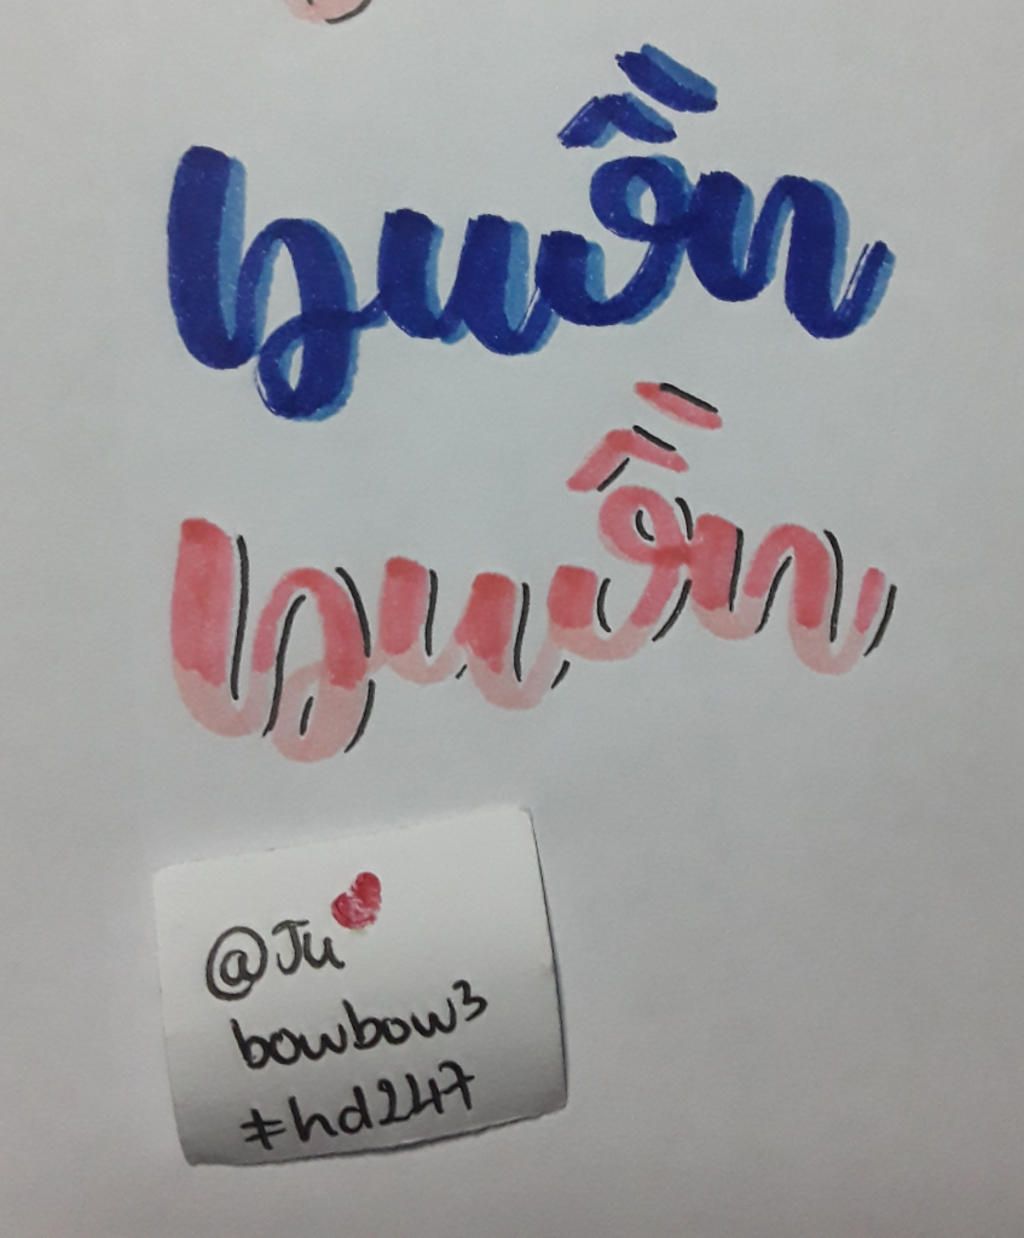 buồn
buồn
@Ju
bowbow3
#hd247